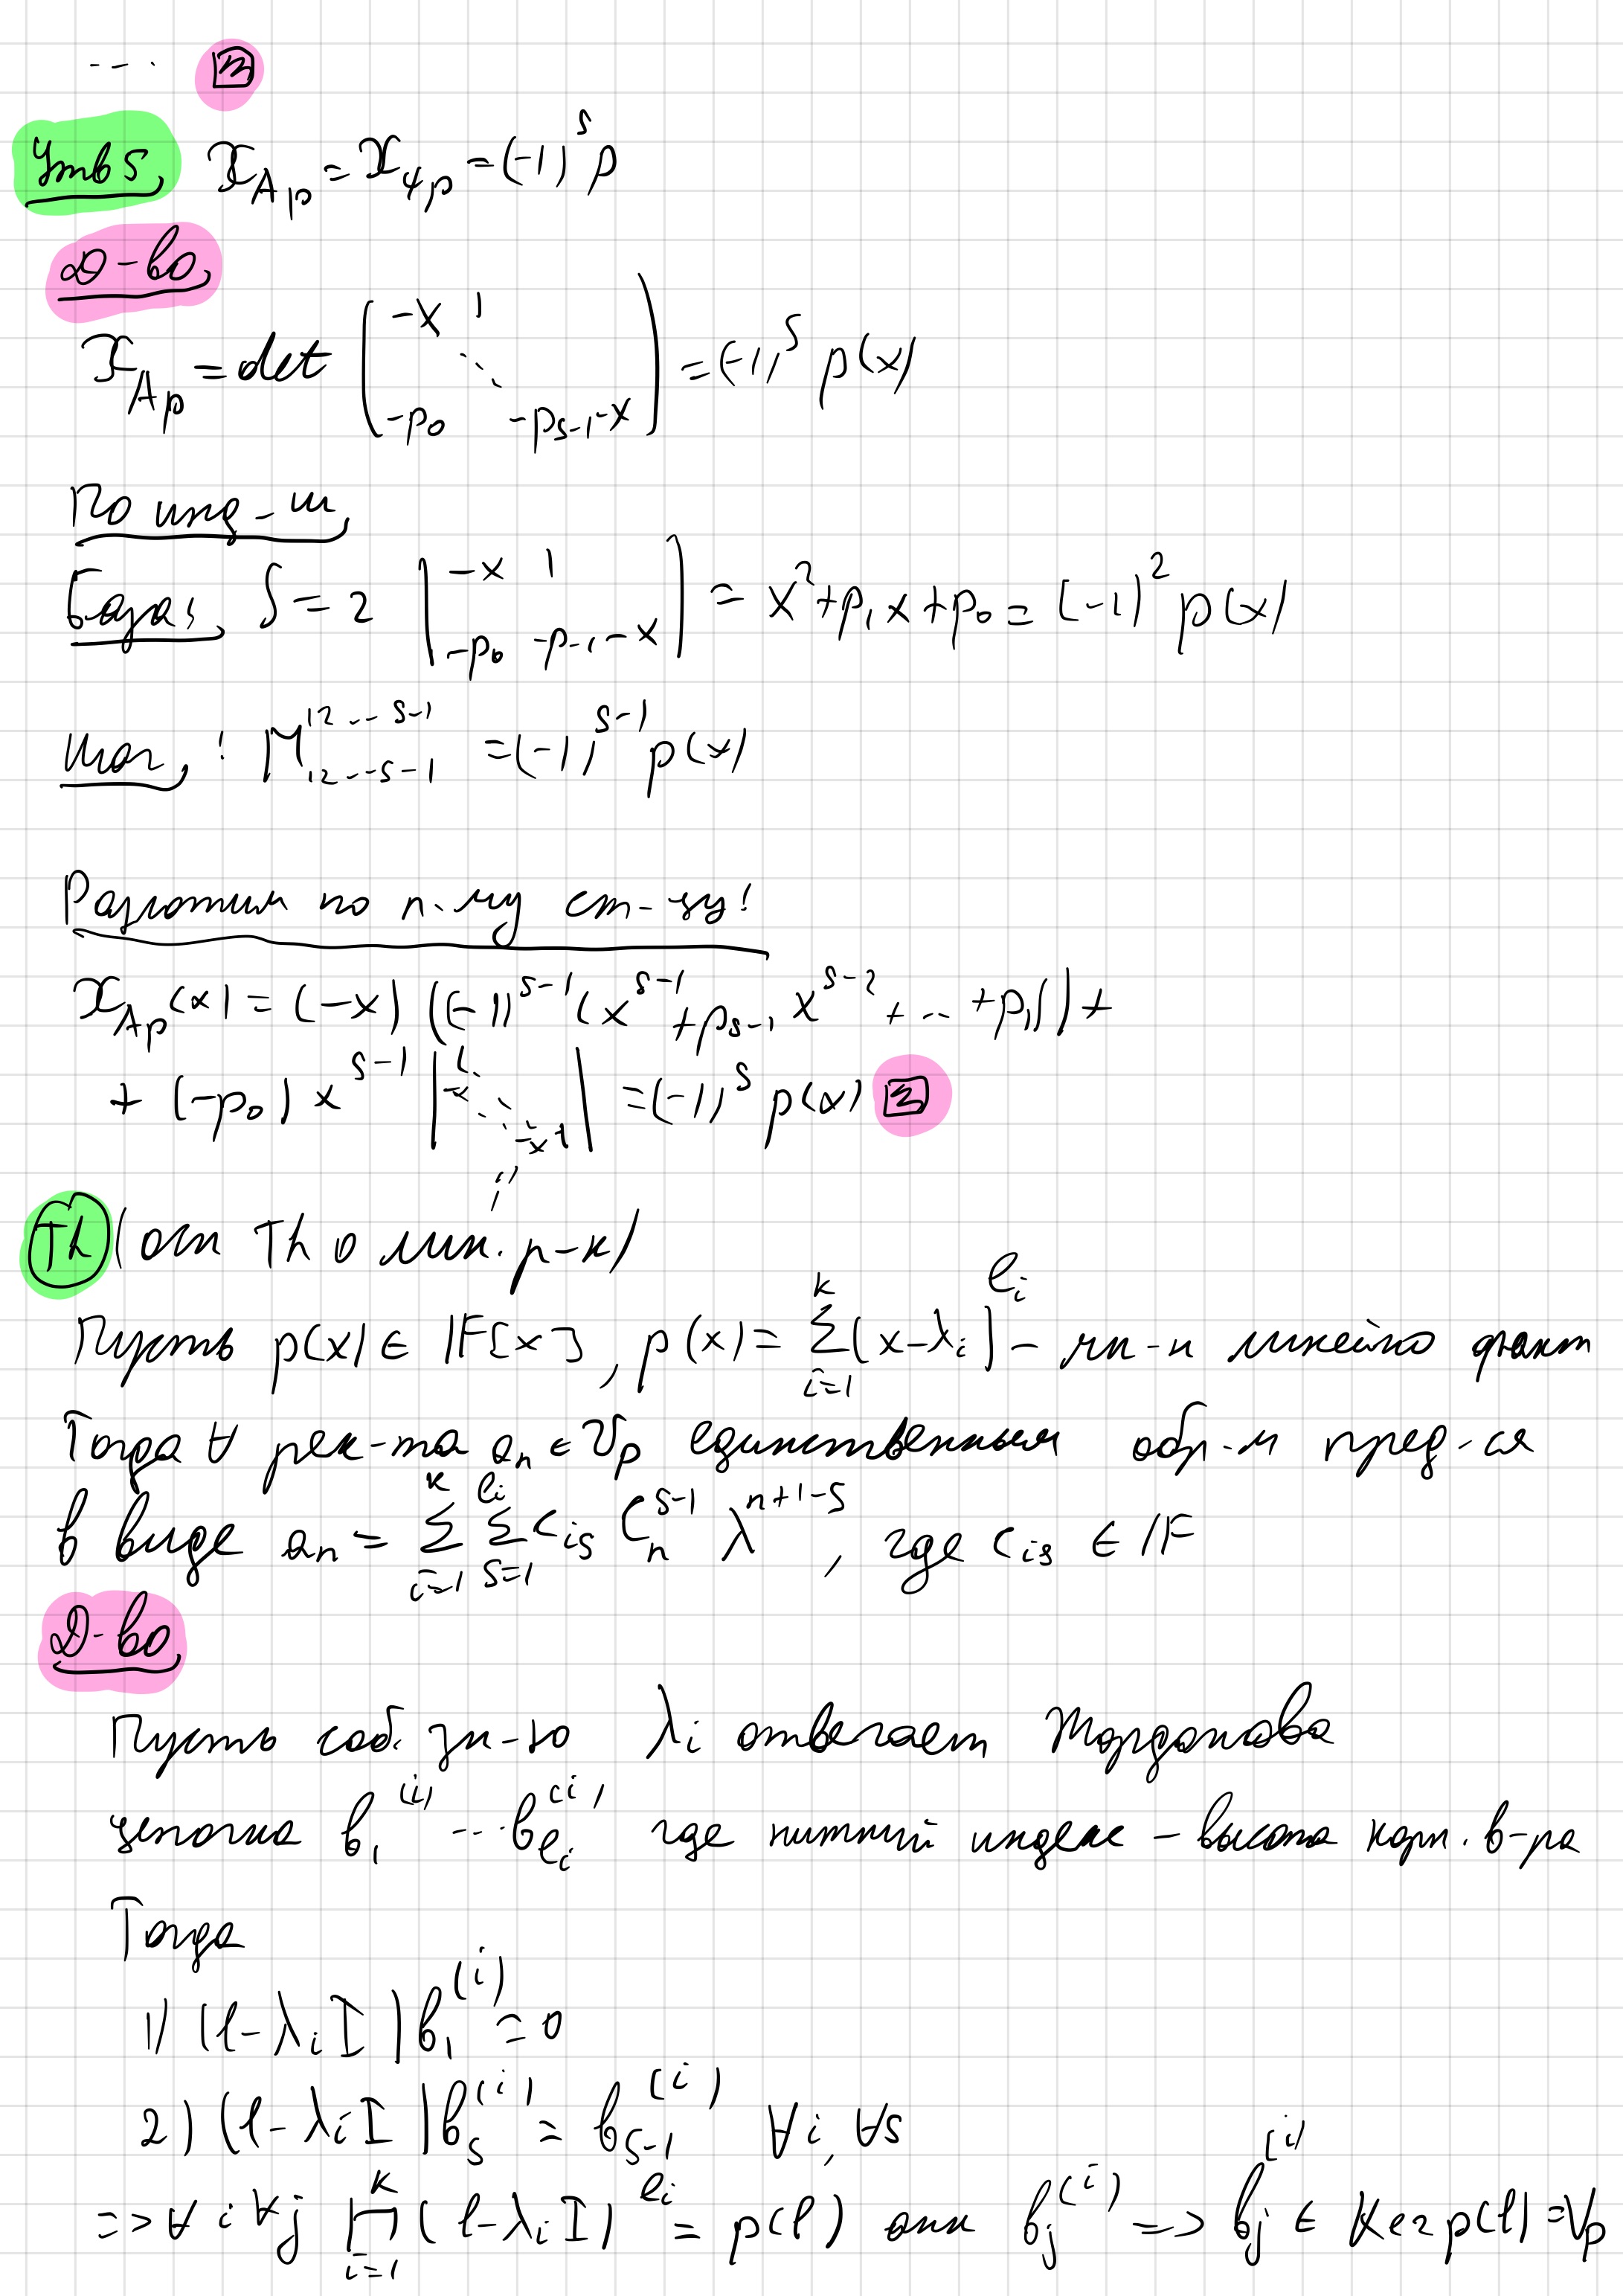 Утв 5. χ_{A_p} = χ_{φ_p} = (-1)^s p
Д-во.
χ_{A_p} = det ( -x 1 ⋱ -p_0 -p_{s-1}-x ) = (-1)^s p(x)
По инд-и,
База: S = 2 | -x 1 -p_0 -p_{-1}-x | = x^2 + p_1 x + p_0 = (-1)^2 p(x)
Шаг,: M^{12...s-1}_{12...s-1} = (-1)^{s-1} p(x)
Разложим по п-му ст-цу:
χ_{A_p}(x) = (-x) ((-1)^{s-1} (x^{s-1} + p_{s-1} x^{s-2} + ... + p_1)) +
+ (-p_0) x^{s-1} | 1 -x ⋱ -x 1 | = (-1)^s p(x)
Th (осн Th о лин. р-к)
Пусть p(x) ∈ F[x], p(x) = Σ_{i=1}^{k} (x-λ_i)^{e_i} - мн-н линейно факт
Тогда ∀ рек-та a_n ∈ V_p единственным обр-м пред-ся
в виде a_n = Σ_{i=1}^{k} Σ_{s=1}^{e_i} c_{is} C_n^{s-1} λ^{n+1-s}, где c_{is} ∈ F
Д-во
Пусть соб. зн-ю λ_i отвечает Жорданова
цепочка b_1^{(i)} ... b_{e_i}^{(i)} где нижний индекс - высота корн. в-ра
Тогда
1) (l-λ_i I) b_1^{(i)} = 0
2) (l-λ_i I) b_s^{(i)} = b_{s-1}^{(i)} ∀i, ∀s
=> ∀i ∀j ∏_{i=1}^{k} (l-λ_i I)^{e_i} = p(l) анн b_j^{(i)} => b_j^{(i)} ∈ Ker p(l) = V_p